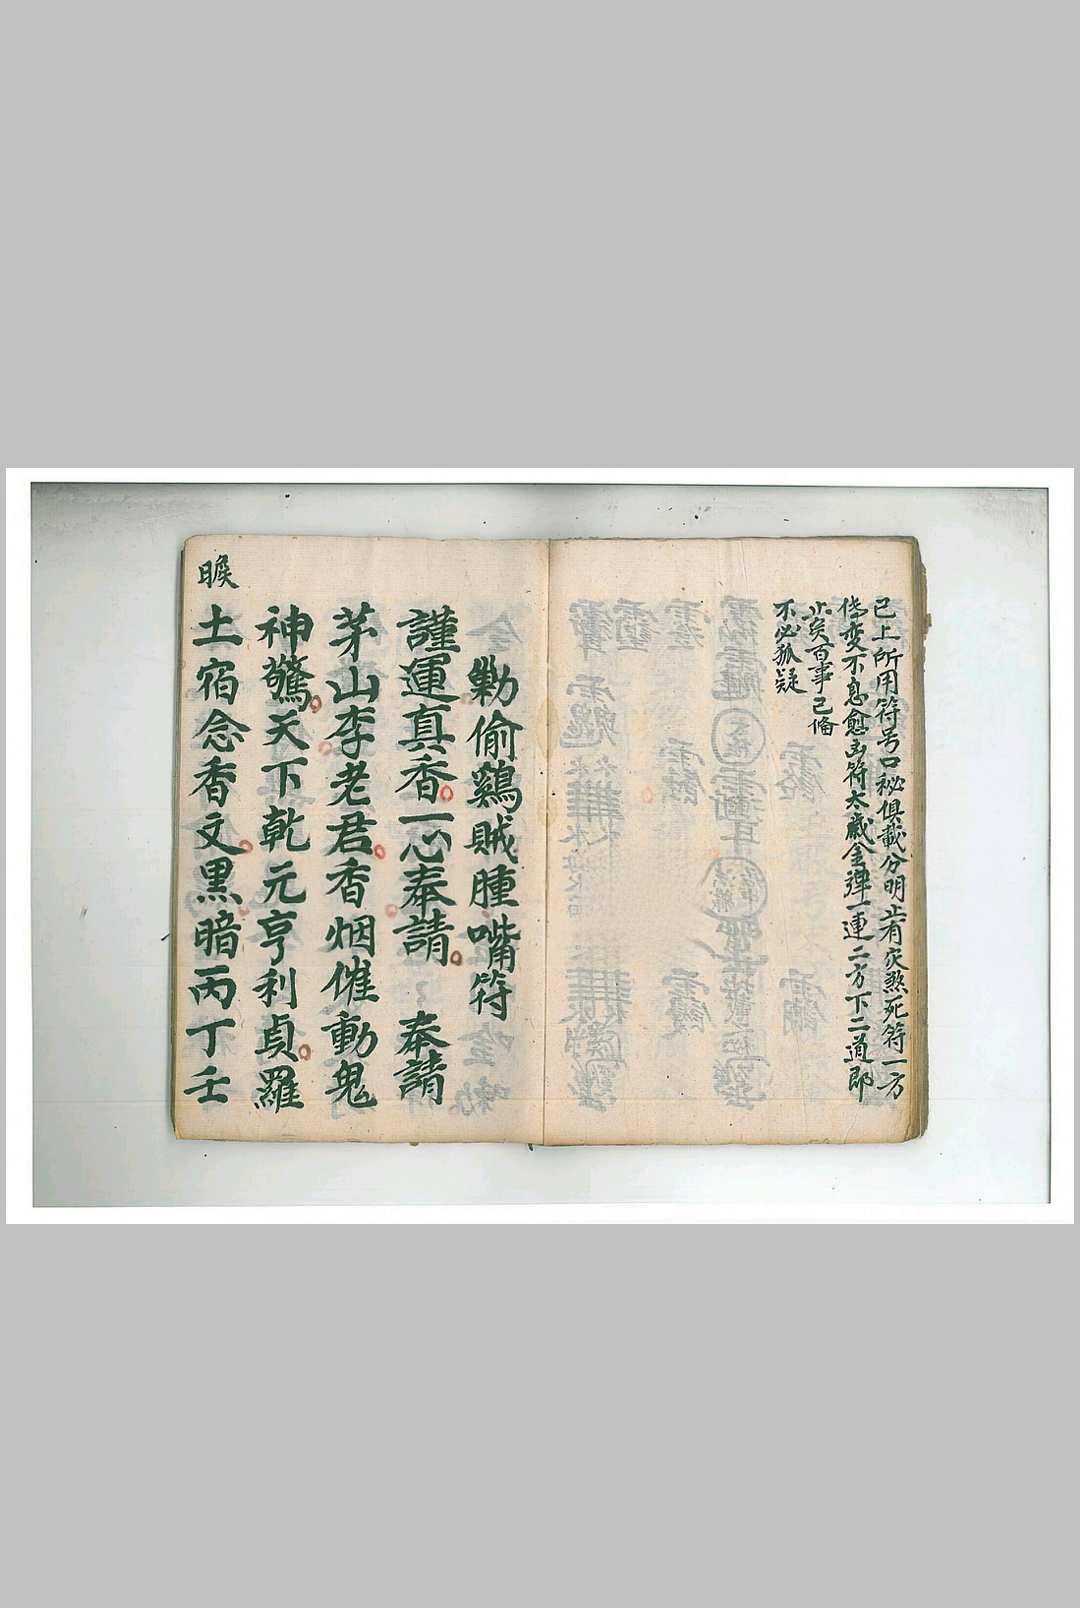 已上所用符号口秘俱載分明止有灾煞死符一方
傳变不息愈出符太歲金彈一連二方下二道即
止矣百事已俻
不必狐疑
勦偷鷄賊腫嘴符
謹運真香一心奉請 奉請
茅山李老君香烟催動鬼
神驚天下乾元亨利貞羅
睺
土宿念香文黑暗丙丁壬